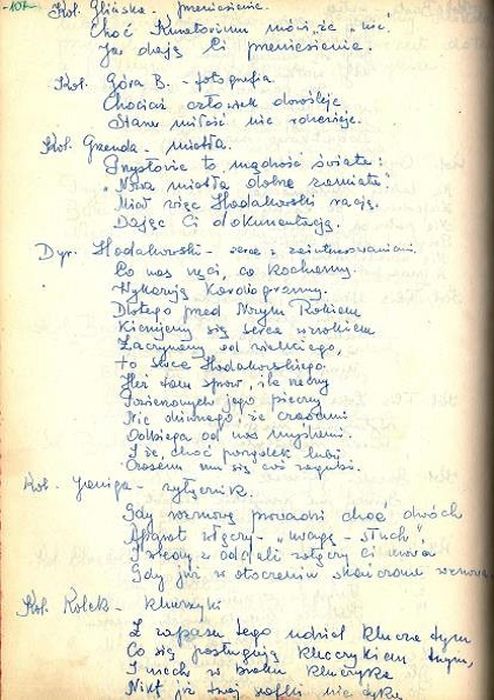 -107-
Kol. Glińska - przeniesienie.
Choć Kuratorium mówi, że "nie".
Ja dają Ci przeniesienie.
Kol. Góra B. - fotografia.
Chociaż człowiek dorośleje
Stara miłość nie rdzewieje.
Kol. Grzenda - miotła.
Przysłowie to mądrość świata:
"Nowa miotła dobrze zamiata".
Miał więc Hodakowski rację
Dając Ci dokumentację.
Dyr. Hodakowski - serce z zainteresowaniami.
Co nas nęci, co kochamy.
Wykazują Kardiogramy.
Dlatego przed Nowym Rokiem
Kierujemy się serca wzrokiem
Zaczynamy od wielkiego,
to serce Hodakowskiego.
Jest tam spraw, ile rzeczy
jego pieczy
Nic dziwnego, że czasami
Odbiega od nas myślami.
I że, choć porządek lubi
Czasem mu się coś zagubi.
Kol. Janiga - wyłącznik.
Gdy rozmowę prowadzi choć dwóch
Aparat włączy - "uwaga - słuch"
I wtedy z oddali
Gdy już w otoczeniu skończona rozmowa.
Kol. Kolek - kluczyki
Z zapasu tego udziel klucze tym
Co się posługują kluczykiem
I niech w braku kluczyka
Nikt już twej nie tyka.